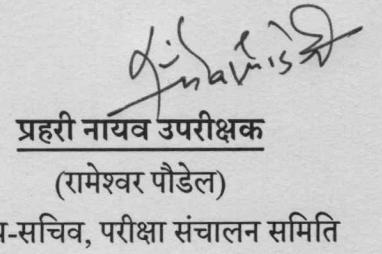 प्रहरी नायव उपरीक्षक
(रामेश्वर पौडेल)
-सचिव, परीक्षा संचालन समिति